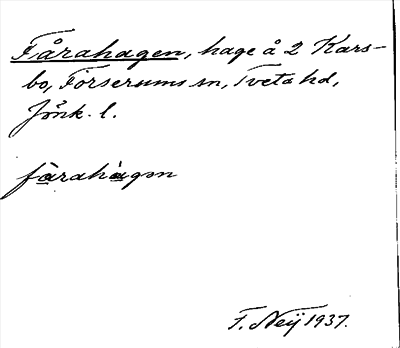 Fårahagen, hage å 2 Kars-
bo, Förserums sn, Tveta hd,
Jönk. l.
fàrahàgən
F. Neij 1937.